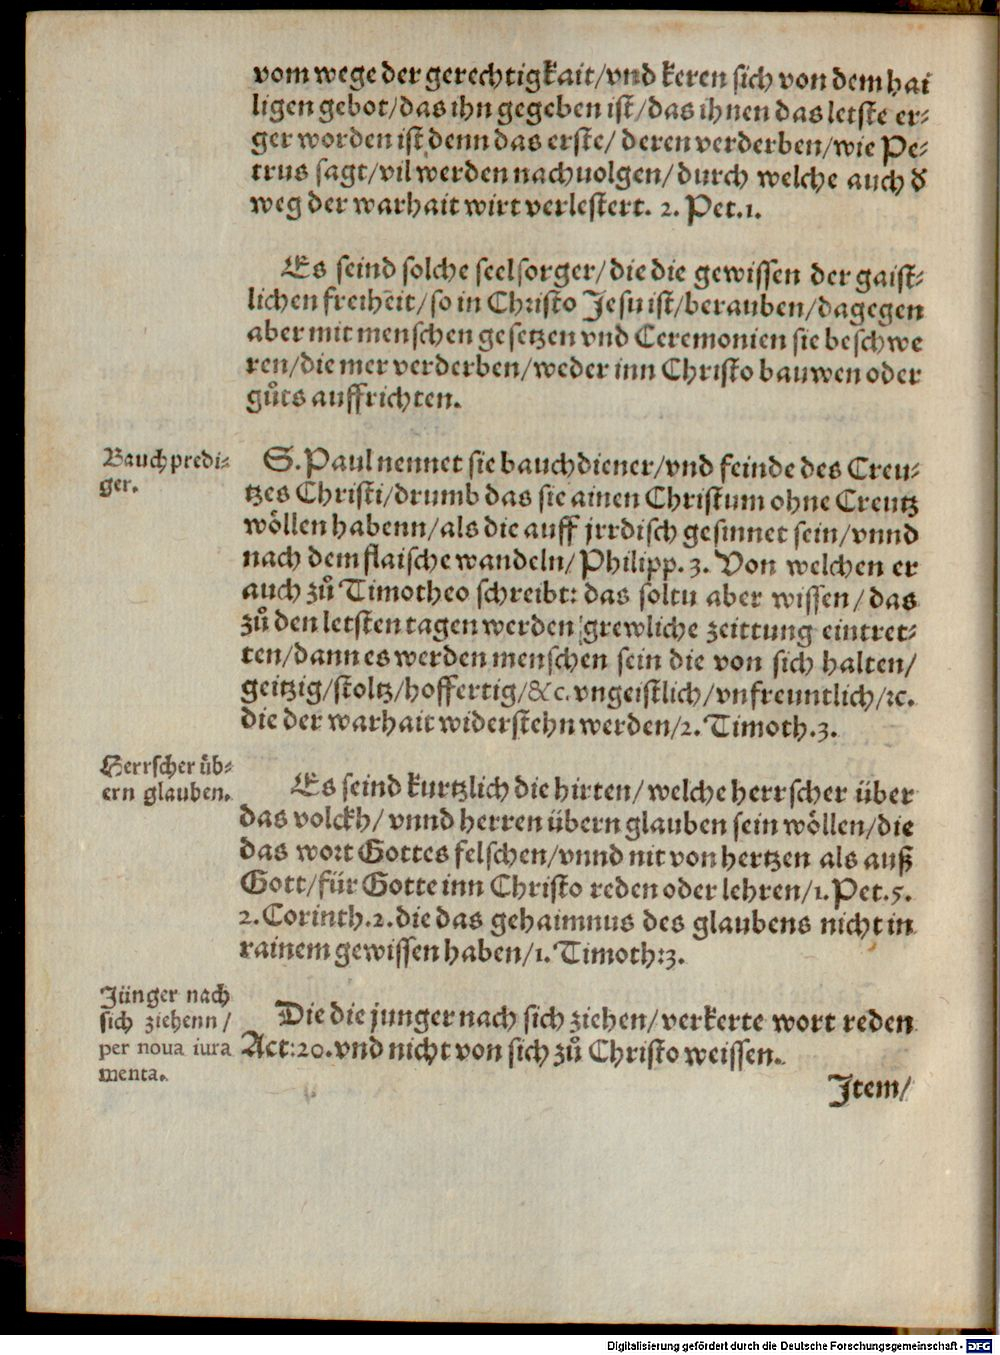 vom wege der gerechtigkait/vnd keren sich von dem hai
ligen gebot/das ihn gegeben ist/das ihnen das letste er⸗
ger worden ist denn das erste/ deren verderben/wie Pe⸗
trus sagt/vil werden nachuolgen/durch welche auch d̕
weg der warhait wirt verlestert. 2. Pet.1.
Es seind solche seelsorger/die die gewissen der gaist⸗
lichen freiheit/so in Christo Jesu ist/berauben/dagegen
aber mit menschen gesetzen vnd Ceremonien sie beschwe
ren/die mer verderben/weder inn Christo bauwen oder
gůts auffrichten.
Bauchpredi⸗
ger.
S.Paul nennet sie bauchdiener/vnd feinde des Creu⸗
tzes Christi/drumb das sie ainen Christum ohne Creutz
wöllen habenn/als die auff jrrdisch gesinnet sein/vnnd
nach dem flaische wandeln/Philipp.3. Von welchen er
auch zů Timotheo schreibt: das soltu aber wissen/das
zů den letsten tagen werden grewliche zeittung eintret⸗
ten/dann es werden menschen sein die von sich halten/
geitzig/stoltz/hoffertig/&c. vngeistlich/vnfreuntlich/ꝛc.
die der warhait widerstehn werden/2. Timoth.3.
Herrscher üb⸗
ern glauben.
Es seind kurtzlich die hirten/welche herrscher über
das volckh/vnnd herren übern glauben sein wöllen/die
das wort Gottes felschen/vnnd nit von hertzen als auß
Gott/für Gotte inn Christo reden oder lehren/1. Pet.5.
2.Corinth.2.die das gehaimnus des glaubens nicht in
rainem gewissen haben/1. Timoth:3.
Jünger nach
sich ziehenn/
per noua iura
menta.
Die die junger nach sich ziehen/verkerte wort reden
Act:20.vnd nicht von sich zů Christo weissen.
Item/
Digitalisierung gefördert durch die Deutsche Forschungsgemeinschaft - DFG